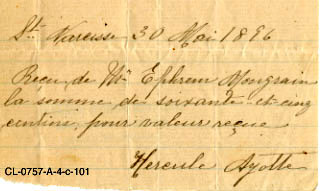 St. Narcisse 30 Mai 1896
Recu de Mr Ephrem Mongrain
la somme de soixante et cinq
centins pour valeur reçue
Hercule Ayotte
CL-0757-A-4-c-101